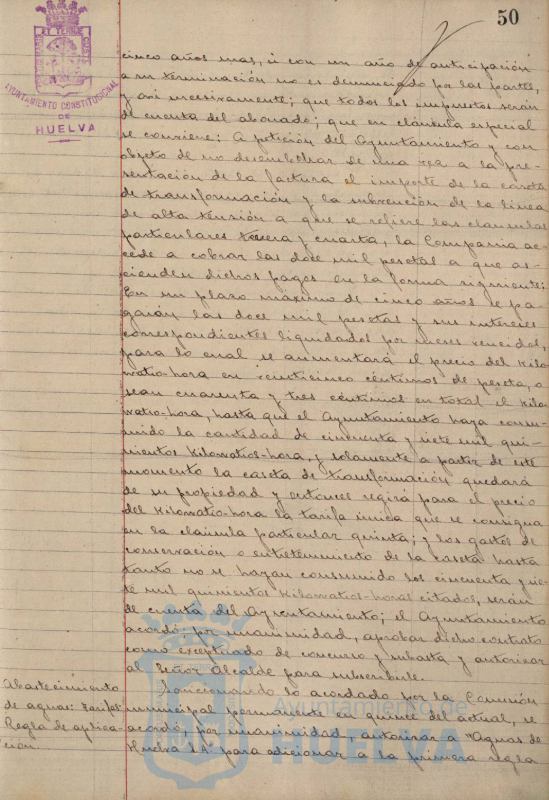 50
AYUNTAMIENTO CONSTITUCIONAL
DE
HUELVA
cinco años mas, si con un año de anticipación
a su terminación no es denunciado por las partes,
y asi sucesivamente; que todos los impuestos serán
de cuenta del abonado; que en cláusula especial
se conviene: A petición del Ayuntamiento y con
objeto de no desembolsar de una vez a la pre-
sentación de la factura el importe de la caseta
de transformación y la subvención de la linea
de alta tensión a que se refiere las clausulas
particulares tercera y cuarta, la Compañia ac-
cede a cobrar las doce mil pesetas a que as-
cienden dichos pagos en la forma siguiente:
En un plazo máximo de cinco años se pa-
garán las doce mil pesetas y sus intereses
correspondientes liquidados por meses vencidos,
para lo cual se aumentará el precio del kilo-
watio-hora en veinticinco céntimos de peseta, o
sean cuarenta y tres céntimos en total el kilo-
watio-hora, hasta que el Ayuntamiento haya consu-
mido la cantidad de cincuenta y siete mil qui-
nientos kilowatios-hora, y solamente a partir de este
momento la caseta de transformación quedará
de su propiedad y entonces regirá para el precio
del kilowatio-hora la tarifa única que se consigna
en la cláusula particular quinta; y los gastos de
conservación o entretenimiento de la caseta hasta
tanto no se hayan consumido los cincuenta y sie-
te mil quinientos kilowatios-horas citados, serán
de cuenta del Ayuntamiento; el Ayuntamiento
acordó, por unanimidad, aprobar dicho contrato
como exceptuado de concurso y subasta y autorizar
al Señor Alcalde para subscribirle.
Abastecimiento
de aguas: tarifas
Regla de aplica-
ción.
Sancionando lo acordado por la Comisión
municipal permanente en quince del actual, se
acordó, por unanimidad, autorizar a "Aguas de
Huelva S.A." para adicionar a la primera regla
Ayuntamiento de
HUELVA